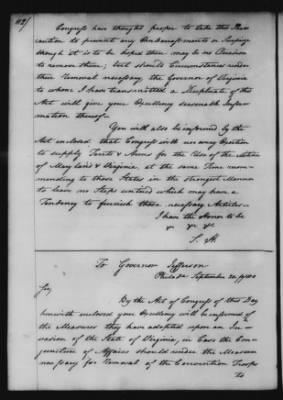 112
Congress have thought proper to take this Pre
caution to prevent any Embarrassments or Surprize
though it is to be hoped there may be no Occasion
to remove them; but should Circumstances render
their Removal necessary the Governor of Virginia
to whom I have transmitted a Duplicate of the
Act will give your Excellency seasonable Infor
mation thereof—
You will also be informed by the
Act enclosed that Congress will use every Exertion
to supply Tents & Arms for the Use of the Militia
of Maryland & Virginia at the same Time recom
mending to those States in the strongest Manner
to leave no Steps untried which may have a
Tendency to furnish those necessary Articles.
I have the Honor to be
&c &c &c
S. H.
To Governor Jefferson
Philada September 20, 1780
Sir,
By the Act of Congress of this Day
herewith enclosed your Excellency will be informed of
the Measures they have adopted upon an In-
vasion of the State of Virginia, in Case the Con-
juncture of Affairs should render the Measure
necessary for Removal of the Convention Troops
to